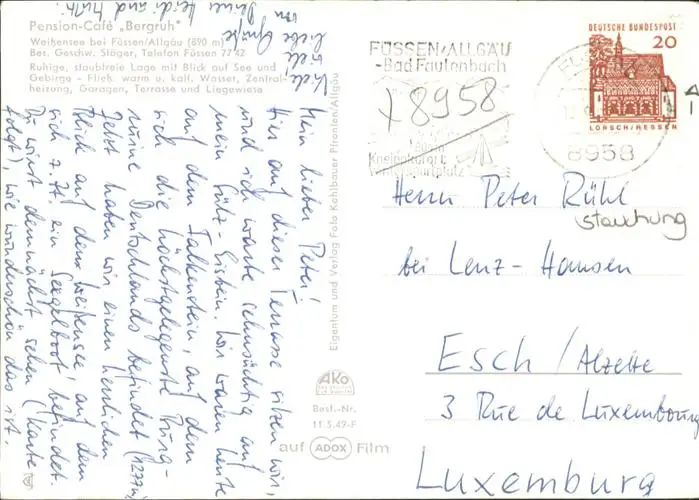 Pension-Café „Bergruh"
Weißensee bei Füssen/Allgäu (890 m)
Bes. Geschw. Stöger, Telefon Füssen 77 42
Ruhige, staubfreie Lage mit Blick auf See und
Gebirge - Fließ. warm u. kalt. Wasser, Zentral-
heizung, Garagen, Terrasse und Liegewiese
Mein lieber Peter!
Hier auf dieser Terrasse sitzen wir,
und ich warte sehnsüchtig auf
mein Gulz-Eisbein. Wir waren heute
auf dem Falkenstein, auf dem
sich die höchstgelegenste Burg-
ruine Deutschlands befindet (1277m)
Jetzt haben wir einen herrlichen
Blick auf den Weißensee, auf dem
sich z. Zt. ein Segelboot befindet.
Du wirst demnächst sehen (Karte
folgt), wie wunderschön das ist.
Viele, viele
liebe Grüße
von
Deine Heidi und Mutti.
Eigentum und Verlag Foto Kohlbauer Pfronten/Allgäu
AKo
Best.-Nr.
11.5.49-F
auf ADOX Film
FÜSSEN/ALLGÄU
-Bad Faulenbach
x8958
Kneippkurort
Wintersportplatz
8958
DEUTSCHE BUNDESPOST
20
LORSCH/HESSEN
Herrn Peter Rühl
stauchung
bei Lenz-Hansen
Esch/Alzette
3 Rue de Luxembourg
Luxemburg